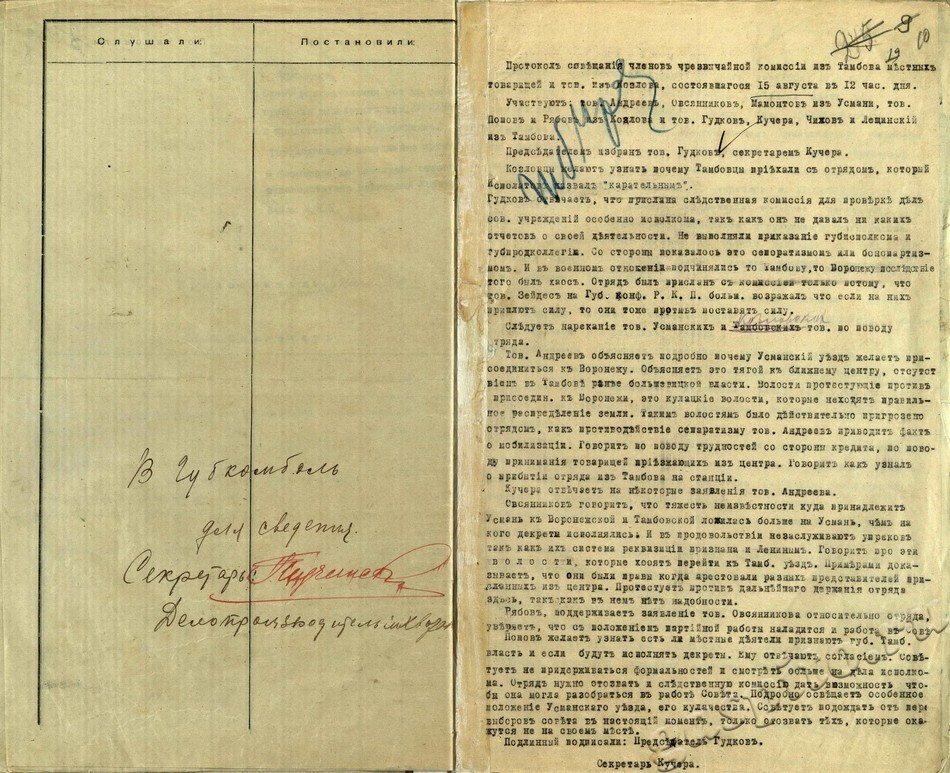 Слушали:
Постановили:
В Губкомболь
для сведения.
Секретарь:
Делопроизводитель
245
9
10
19
Протоколъ совѣщанія членовъ чрезвычайной комиссіи изъ Тамбова мѣстныхъ
товарищей и тов. изъ Козлова, состоявшагося 15 августа въ 12 час. дня.
Участвуютъ: тов. Андреевъ, Овсянниковъ, Мамонтовъ изъ Усмани, тов.
Поповъ и Рябовъ изъ Козлова и тов. Гудковъ, Кучера, Чиховъ и Лещинскій
изъ Тамбова.
Предсѣдателемъ избранъ тов. Гудковъ, секретаремъ Кучера.
Козловцы желаютъ узнать почему Тамбовцы пріѣхали съ отрядомъ, который
назвалъ "карательнымъ".
Гудковъ отвѣчаетъ, что прислана слѣдственная комиссія для провѣркѣ дѣлъ
сов. учрежденій особенно исполкома, такъ какъ онъ не давалъ ни какихъ
отчетовъ о своей дѣятельности. Не выполняли приказаніе губисполкома и
губпродколлегіи. Со стороны показалось это сепоратизмомъ или бонопартиз-
момъ. И въ военномъ отношеніи подчинялись то Тамбову, то Воронежу послѣдствіе
того былъ хаосъ. Отрядъ былъ присланъ съ комиссіей только потому, что
тов. Зейдесъ на Губ. конф. Р. К. П. больш. возражалъ что если на нихъ
пришлютъ силу, то они тоже противъ поставятъ силу.
Слѣдуетъ нареканіе тов. Усманскихъ и Тамбовскихъ тов. по поводу
Козловских
отряда.
Тов. Андреевъ объясняетъ подробно почему Усманскій уѣздъ желаетъ при-
соединиться къ Воронежу. Объясняетъ это тягой къ ближнему центру, отсутст
віемъ въ Тамбовѣ ранѣе большевицкой власти. Волости протестующіе противъ
присоедин. къ Воронежи, это кулацкіе волости, которые неходятъ правиль-
ное распредѣленіе земли. Такимъ волостямъ было дѣйствительно пригрозено
отрядомъ, какъ противодѣйствіе сепаратизму тов. Андреевъ приводитъ фактъ
о мобилизаціи. Говоритъ по поводу трудностей со стороны кредита, по пово-
ду приниманія товарищей пріѣзжающихъ изъ центра. Говоритъ какъ узналъ
о прибытіи отряда изъ Тамбова на станціи.
Кучера отвѣчаетъ на нѣкоторые заявленія тов. Андреева.
Свсянниковъ говоритъ, что тяжесть неизвѣстности куда принадлежитъ
Усмань къ Воронежской и Тамбовской ложилась больше на Усмань, чѣмъ на
кого декреты исполнялись. И въ продовольствіи незаслуживаютъ упрековъ
такъ какъ ихъ система реквизиціи признана и Ленинымъ. Говоритъ про эти
волости, которые хоятъ перейти къ Тамб. уѣздъ. Примѣрами дока-
зываетъ, что они были правы когда арестовали разныхъ представителей при-
сланныхъ изъ центра. Протестуетъ противъ дальнѣйнаго держанія отряда
здѣсь, такъ какъ въ немъ нѣтъ надобности.
Рябовъ, поддерживаетъ заявленіе тов. Овсянникова относительно отряда,
увѣряетъ, что съ положеніемъ партійной работы наладится и работа въ сов.
Поповъ желаетъ узнать есть ли мѣстные дѣятели признаютъ губ. Тамб.
власть и если будутъ исполнять декреты. Ему отвѣчаютъ согласіемъ. Совѣ-
туетъ не придерживаться формальностей и смотрѣть больше на дѣла исполко-
ма. Отрядъ нужно отозвать и слѣдственную комиссію дать возможность что-
бы она могла разобраться въ работѣ Совѣта. Подробно освѣщаетъ особенное
положеніе Усманскаго уѣзда, его кулачества. Совѣтуетъ подождать отъ пере
выборовъ совѣта въ настоящій моментъ, только отозвать тѣхъ, которые ока-
жутся не на своемъ мѣстѣ.
Подлинный подписали: Предсѣдатель Гудковъ.
Секретарь Кучера.